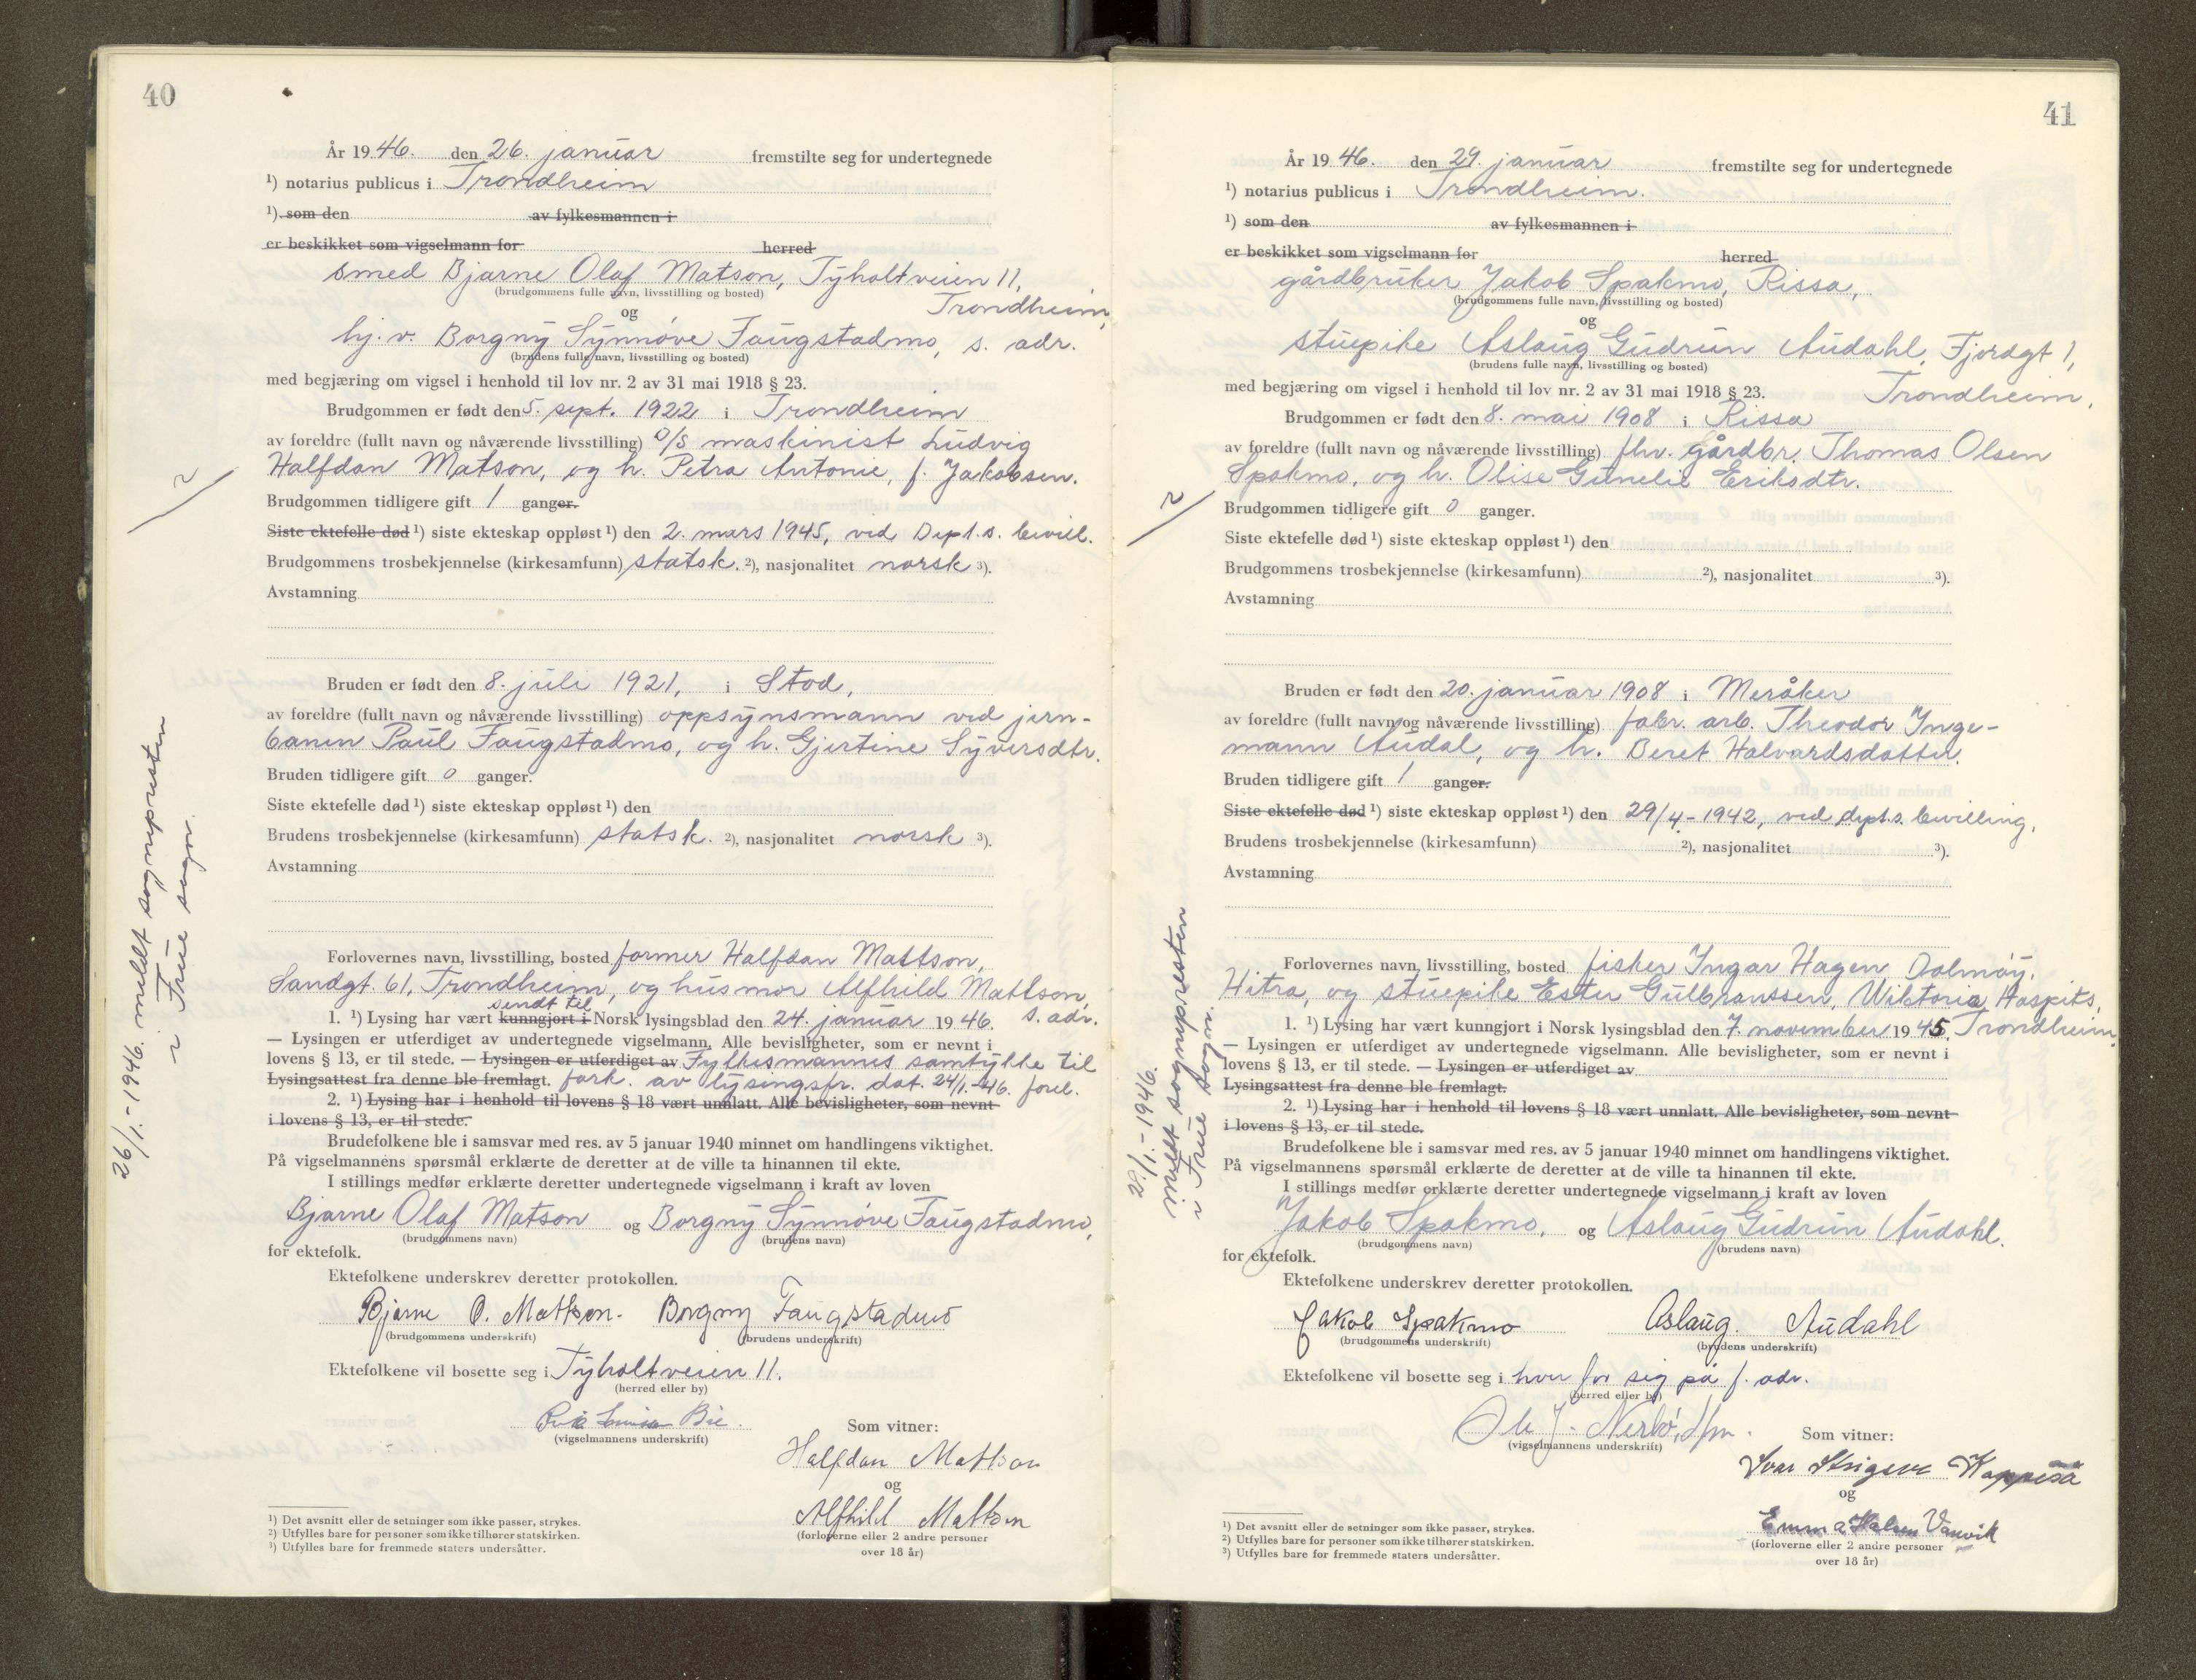 40
År 1946. den 26. januar fremstilte seg for undertegnede
¹) notarius publicus i Trondheim
¹) som den av fylkesmannen i
er beskikket som vigselmann for herred
smed Bjarne Olaf Matson, Tyholtveien 11,
(brudgommens fulle navn, livsstilling og bosted)
Trondheim,
og
hj.v. Borgny Synnöve Faugstadmo, s. adr.
(brudens fulle navn, livsstilling og bosted)
med begjæring om vigsel i henhold til lov nr. 2 av 31 mai 1918 § 23.
Brudgommen er født den 5. sept. 1922 i Trondheim
av foreldre (fullt navn og nåværende livsstilling) d/s maskinist Ludvig
Halfdan Matson, og h. Petra Antonie, f. Jakobsen.
Brudgommen tidligere gift 1 ganger.
Siste ektefelle død ¹) siste ekteskap oppløst ¹) den 2. mars 1945, vid Dept.s. bevill.
Brudgommens trosbekjennelse (kirkesamfunn) statsk. ²), nasjonalitet norsk ³).
Avstamning
Bruden er født den 8. juli 1921, i Stod,
av foreldre (fullt navn og nåværende livsstilling) oppsynsmann ved jern-
banen Paul Faugstadmo, og h. Gjertine Syversdtr.
Bruden tidligere gift 0 ganger.
Siste ektefelle død ¹) siste ekteskap oppløst ¹) den
Brudens trosbekjennelse (kirkesamfunn) statsk. ²), nasjonalitet norsk ³).
Avstamning
Forlovernes navn, livsstilling, bosted former Halfdan Mattson,
Sandgt. 61, Trondheim, og husmor Alfhild Mattson,
s. adr.
sendt til
1. ¹) Lysing har vært kunngjort i Norsk lysingsblad den 24. januar 1946.
— Lysingen er utferdiget av undertegnede vigselmann. Alle bevisligheter, som er nevnt i
lovens § 13, er til stede. — Lysingen er utferdiget av Fylkesmannens samtykke til
Lysingsattest fra denne ble fremlagt. fork. av lysingsfr. dat. 24/1.-46. forel.
2. ¹) Lysing har i henhold til lovens § 18 vært unnlatt. Alle bevisligheter, som nevnt
i lovens § 13, er til stede.
Brudefolkene ble i samsvar med res. av 5 januar 1940 minnet om handlingens viktighet.
På vigselmannens spørsmål erklærte de deretter at de ville ta hinannen til ekte.
I stillings medfør erklærte deretter undertegnede vigselmann i kraft av loven
Bjarne Olaf Matson og Borgny Synnöve Faugstadmo,
(brudgommens navn) (brudens navn)
for ektefolk.
Ektefolkene underskrev deretter protokollen.
Bjarne O. Mattson. Borgny Faugstadmo
(brudgommens underskrift) (brudens underskrift)
Ektefolkene vil bosette seg i Tyholtveien 11.
(herred eller by)
Bie.
(vigselmannens underskrift)
Som vitner:
Halfdan Mattson
og
Alfhild Mattson
(forloverne eller 2 andre personer
over 18 år)
¹) Det avsnitt eller de setninger som ikke passer, strykes.
²) Utfylles bare for personer som ikke tilhører statskirken.
³) Utfylles bare for fremmede staters undersåtter.
26/1.-1946. meldt sognepresten
i Frue sogn.
41
År 1946. den 29. januar fremstilte seg for undertegnede
¹) notarius publicus i Trondheim.
¹) som den av fylkesmannen i
er beskikket som vigselmann for herred
gårdbruker Jakob Spakmo, Rissa,
(brudgommens fulle navn, livsstilling og bosted)
og
stuepike Aslaug Gudrun Audahl, Fjordgt 1,
(brudens fulle navn, livsstilling og bosted)
med begjæring om vigsel i henhold til lov nr. 2 av 31 mai 1918 § 23.
Trondheim.
Brudgommen er født den 8. mai 1908 i Rissa
av foreldre (fullt navn og nåværende livsstilling) fhv. gårdbr. Thomas Olsen
Spakmo, og h. Olise Gunelie Eriksdtr.
Brudgommen tidligere gift 0 ganger.
Siste ektefelle død ¹) siste ekteskap oppløst ¹) den
Brudgommens trosbekjennelse (kirkesamfunn) ²), nasjonalitet ³).
Avstamning
Bruden er født den 20. januar 1908 i Meråker
av foreldre (fullt navn og nåværende livsstilling) fabr. arb. Theodor Inge-
mann Audal, og h. Beret Halvardsdatter.
Bruden tidligere gift 1 ganger.
Siste ektefelle død ¹) siste ekteskap oppløst ¹) den 29/4-1942, ved dept.s. bevilling.
Brudens trosbekjennelse (kirkesamfunn) ²), nasjonalitet ³).
Avstamning
Forlovernes navn, livsstilling, bosted fisker Ingar Hagen, Dolmöy,
Hitra, og stuepike Ester Gulbranssen, Wiktoria Hospits,
1. ¹) Lysing har vært kunngjort i Norsk lysingsblad den 7. november 1945. Trondheim.
— Lysingen er utferdiget av undertegnede vigselmann. Alle bevisligheter, som er nevnt i
lovens § 13, er til stede. — Lysingen er utferdiget av
Lysingsattest fra denne ble fremlagt.
2. ¹) Lysing har i henhold til lovens § 18 vært unnlatt. Alle bevisligheter, som nevnt
i lovens § 13, er til stede.
Brudefolkene ble i samsvar med res. av 5 januar 1940 minnet om handlingens viktighet.
På vigselmannens spørsmål erklærte de deretter at de ville ta hinannen til ekte.
I stillings medfør erklærte deretter undertegnede vigselmann i kraft av loven
Jakob Spakmo, og Aslaug Gudrun Audahl.
(brudgommens navn) (brudens navn)
for ektefolk.
Ektefolkene underskrev deretter protokollen.
Jakob Spakmo Aslaug. Audahl
(brudgommens underskrift) (brudens underskrift)
Ektefolkene vil bosette seg i hver for sig på f. adr.
(herred eller by)
Ole J. Nerbö,
(vigselmannens underskrift)
Som vitner:
Ivar
og
Emma Vanvik
(forloverne eller 2 andre personer
over 18 år)
¹) Det avsnitt eller de setninger som ikke passer, strykes.
²) Utfylles bare for personer som ikke tilhører statskirken.
³) Utfylles bare for fremmede staters undersåtter.
/1.-1946.
meldt sognepresten
i Frue sogn.